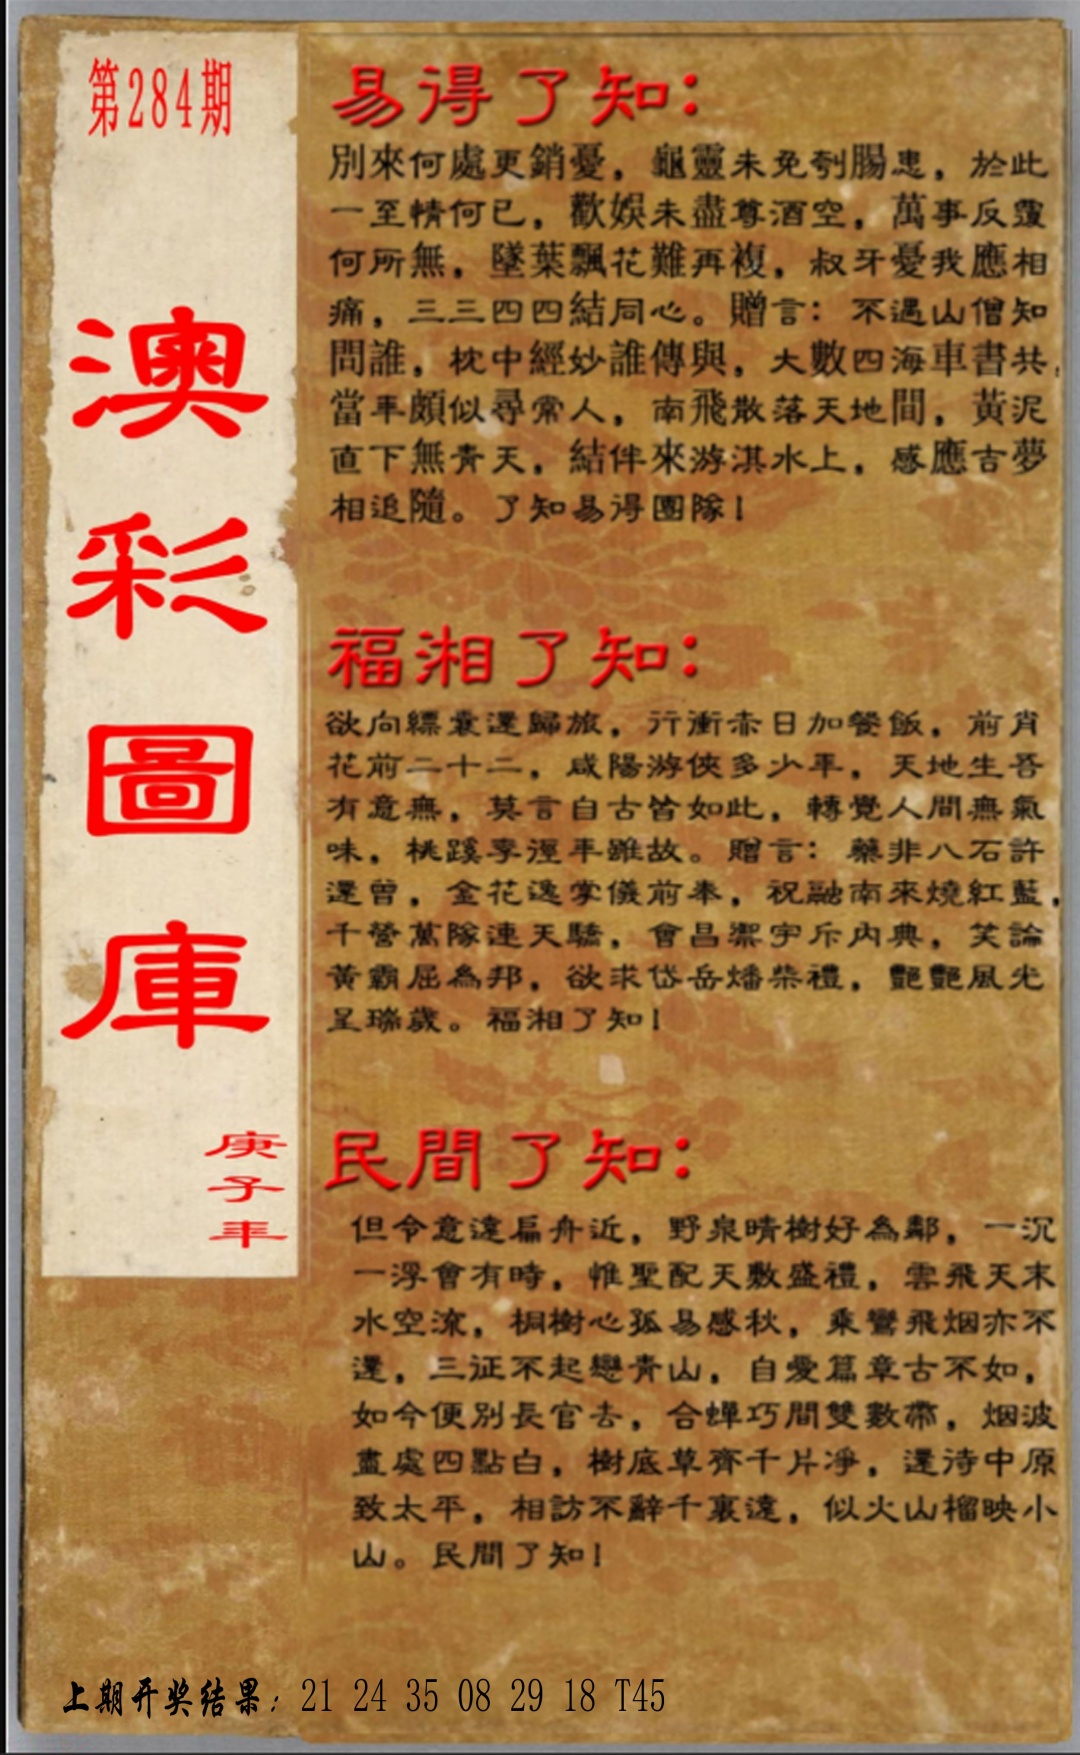 第284期
澳彩圖庫
庚子年
易得了知：
別來何處更銷憂，龜靈未免刳腸患，於此
一至情何已，歡娛未盡尊酒空，萬事反覆
何所無，墜葉飄花難再複，叔牙憂我應相
痛，三三四四結同心。贈言：不遇山僧知
問誰，枕中經妙誰傳與，大數四海車書共，
當年頗似尋常人，南飛散落天地間，黃泥
直下無青天，結伴來游淇水上，感應吉夢
相追隨。了知易得團隊！
福湘了知：
欲向縹囊還歸旅，行衝赤日加餐飯，前肖
花前二十二，咸陽游俠多少年，天地生吾
有意無，莫言自古皆如此，轉覺人間無氣
味，桃蹊李徑年雖故。贈言：藥非八石許
還曾，金花逸掌儀前奉，祝融南來燒紅藍，
千營萬隊連天驕，會昌禦宇斥內典，笑論
黃霸屈為邦，欲求岱岳燔柴禮，艷艷風光
呈瑞歲。福湘了知！
民間了知：
但令意遠扁舟近，野泉晴樹好為鄰，一沉
一浮會有時，惟聖配天敷盛禮，雲飛天末
水空流，桐樹心孤易感秋，乘鸞飛烟亦不
還，三征不起戀青山，自愛篇章古不如，
如今便別長官去，合蟬巧間雙數帶，烟波
盡處四點白，樹底草齊千片凈，還待中原
致太平，相訪不辭千裏遠，似火山榴映小
山。民間了知！
上期开奖结果：21 24 35 08 29 18 T45